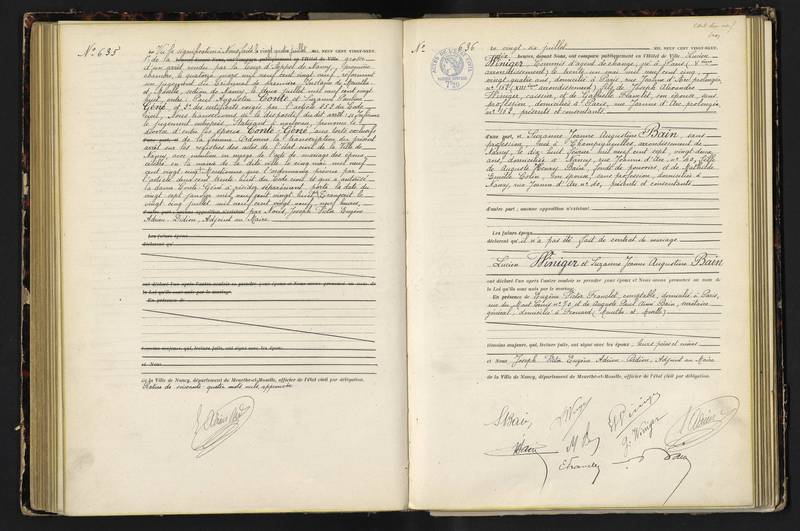 N° 635
Vu la signification à Nous faite le vingt quatre juillet MIL NEUF CENT VINGT-NEUF,
de la grosse
d'un arrêt rendu par la Cour d'Appel de Nancy, première
chambre, le quatorze mars mil neuf cent vingt neuf, réformant
un jugement du Tribunal de première Instance de
et Moselle, séant de Nancy, le deux juillet mil neuf cent vingt
huit, entre Paul Augustin Conte et Suzanne Pauline
Géné et des certificats exigés par l'article 252 du Code
civil, Nous transcrivons ici le dispositif dudit arrêt: Infirme
le jugement entrepris. Statuant à nouveau, prononce le
divorce d'entre les époux Conte-Géné
de la femme. Ordonne la transcription du présent
arrêt sur les registres des actes de l'état civil de la Ville de
Nancy, avec mention en marge de l'acte de mariage des époux,
célébré en la mairie de la dite ville le cinq mai mil neuf
cent vingt neuf. Mentionne que l'ordonnance prévue par
l'article deux cent trente huit du Code civil et qui a autorisé
la dame Conte-Géné à résider séparément porte la date du
vingt sept janvier mil neuf cent vingt huit. Transcrit le
vingt cinq juillet mil neuf cent vingt neuf, neuf heures,
d'autre part; aucune opposition n'existant par Nous, Joseph Victor Eugène
Adrien-Didion, Adjoint au Maire.
Les futurs époux
déclarent qu'
ont déclaré l'un après l'autre vouloir se prendre pour époux et Nous avons prononcé au nom de
la Loi qu'ils sont unis par le mariage.
En présence de
témoins majeurs, qui, lecture faite, ont signé avec les époux
et Nous
de la Ville de Nancy, département de Meurthe-et-Moselle, officier de l'état civil par délégation.
Rature de soixante quatre mots nuls, approuvée
N° 636
Le vingt six juillet MIL NEUF CENT VINGT-NEUF,
heures, devant Nous, ont comparu publiquement en l'Hôtel de Ville, Lucien
Winiger, Commis d'agent de change, né à Paris,
arrondissement) le trente un mai mil neuf cent cinq,
vingt quatre ans, domicilié à Paris, rue Jeanne d'Arc prolongée
n° 168 (XIIIème arrondissement) fils de Joseph Alexandre
Winiger, caissier, et de Gabrielle, son épouse, sans
profession, domiciliés à Paris, rue Jeanne d'Arc prolongée
n° 168, présents et consentants.
d'une part, et Suzanne Jeanne Augustine Bain, sans
profession, née à Champigneulles, arrondissement de
Nancy, le dix huit février mil neuf cent sept, vingt deux
ans, domiciliée à Nancy, rue Jeanne d'Arc n° 40, fille
de Auguste Henry Bain, fondé de pouvoirs, et de Mathilde
son épouse, sans profession, domiciliés à
Nancy, rue Jeanne d'Arc n° 40, présents et consentants.
d'autre part; aucune opposition n'existant
Les futurs époux
déclarent qu'il n'a pas été fait de contrat de mariage
Lucien Winiger et Suzanne Jeanne Augustine Bain
ont déclaré l'un après l'autre vouloir se prendre pour époux et Nous avons prononcé au nom de
la Loi qu'ils sont unis par le mariage.
En présence de Eugène Victor, comptable, domicilié à Paris,
rue du n° 70, et de Auguste Paul Bain, secrétaire
général, domicilié à Frouard (Meurthe et Moselle)
témoins majeurs, qui, lecture faite, ont signé avec les époux, leurs pères et mères
et Nous Joseph Victor Eugène Adrien-Didion, Adjoint au Maire
de la Ville de Nancy, département de Meurthe-et-Moselle, officier de l'état civil par délégation.
S Bain
G. Winiger
Bain